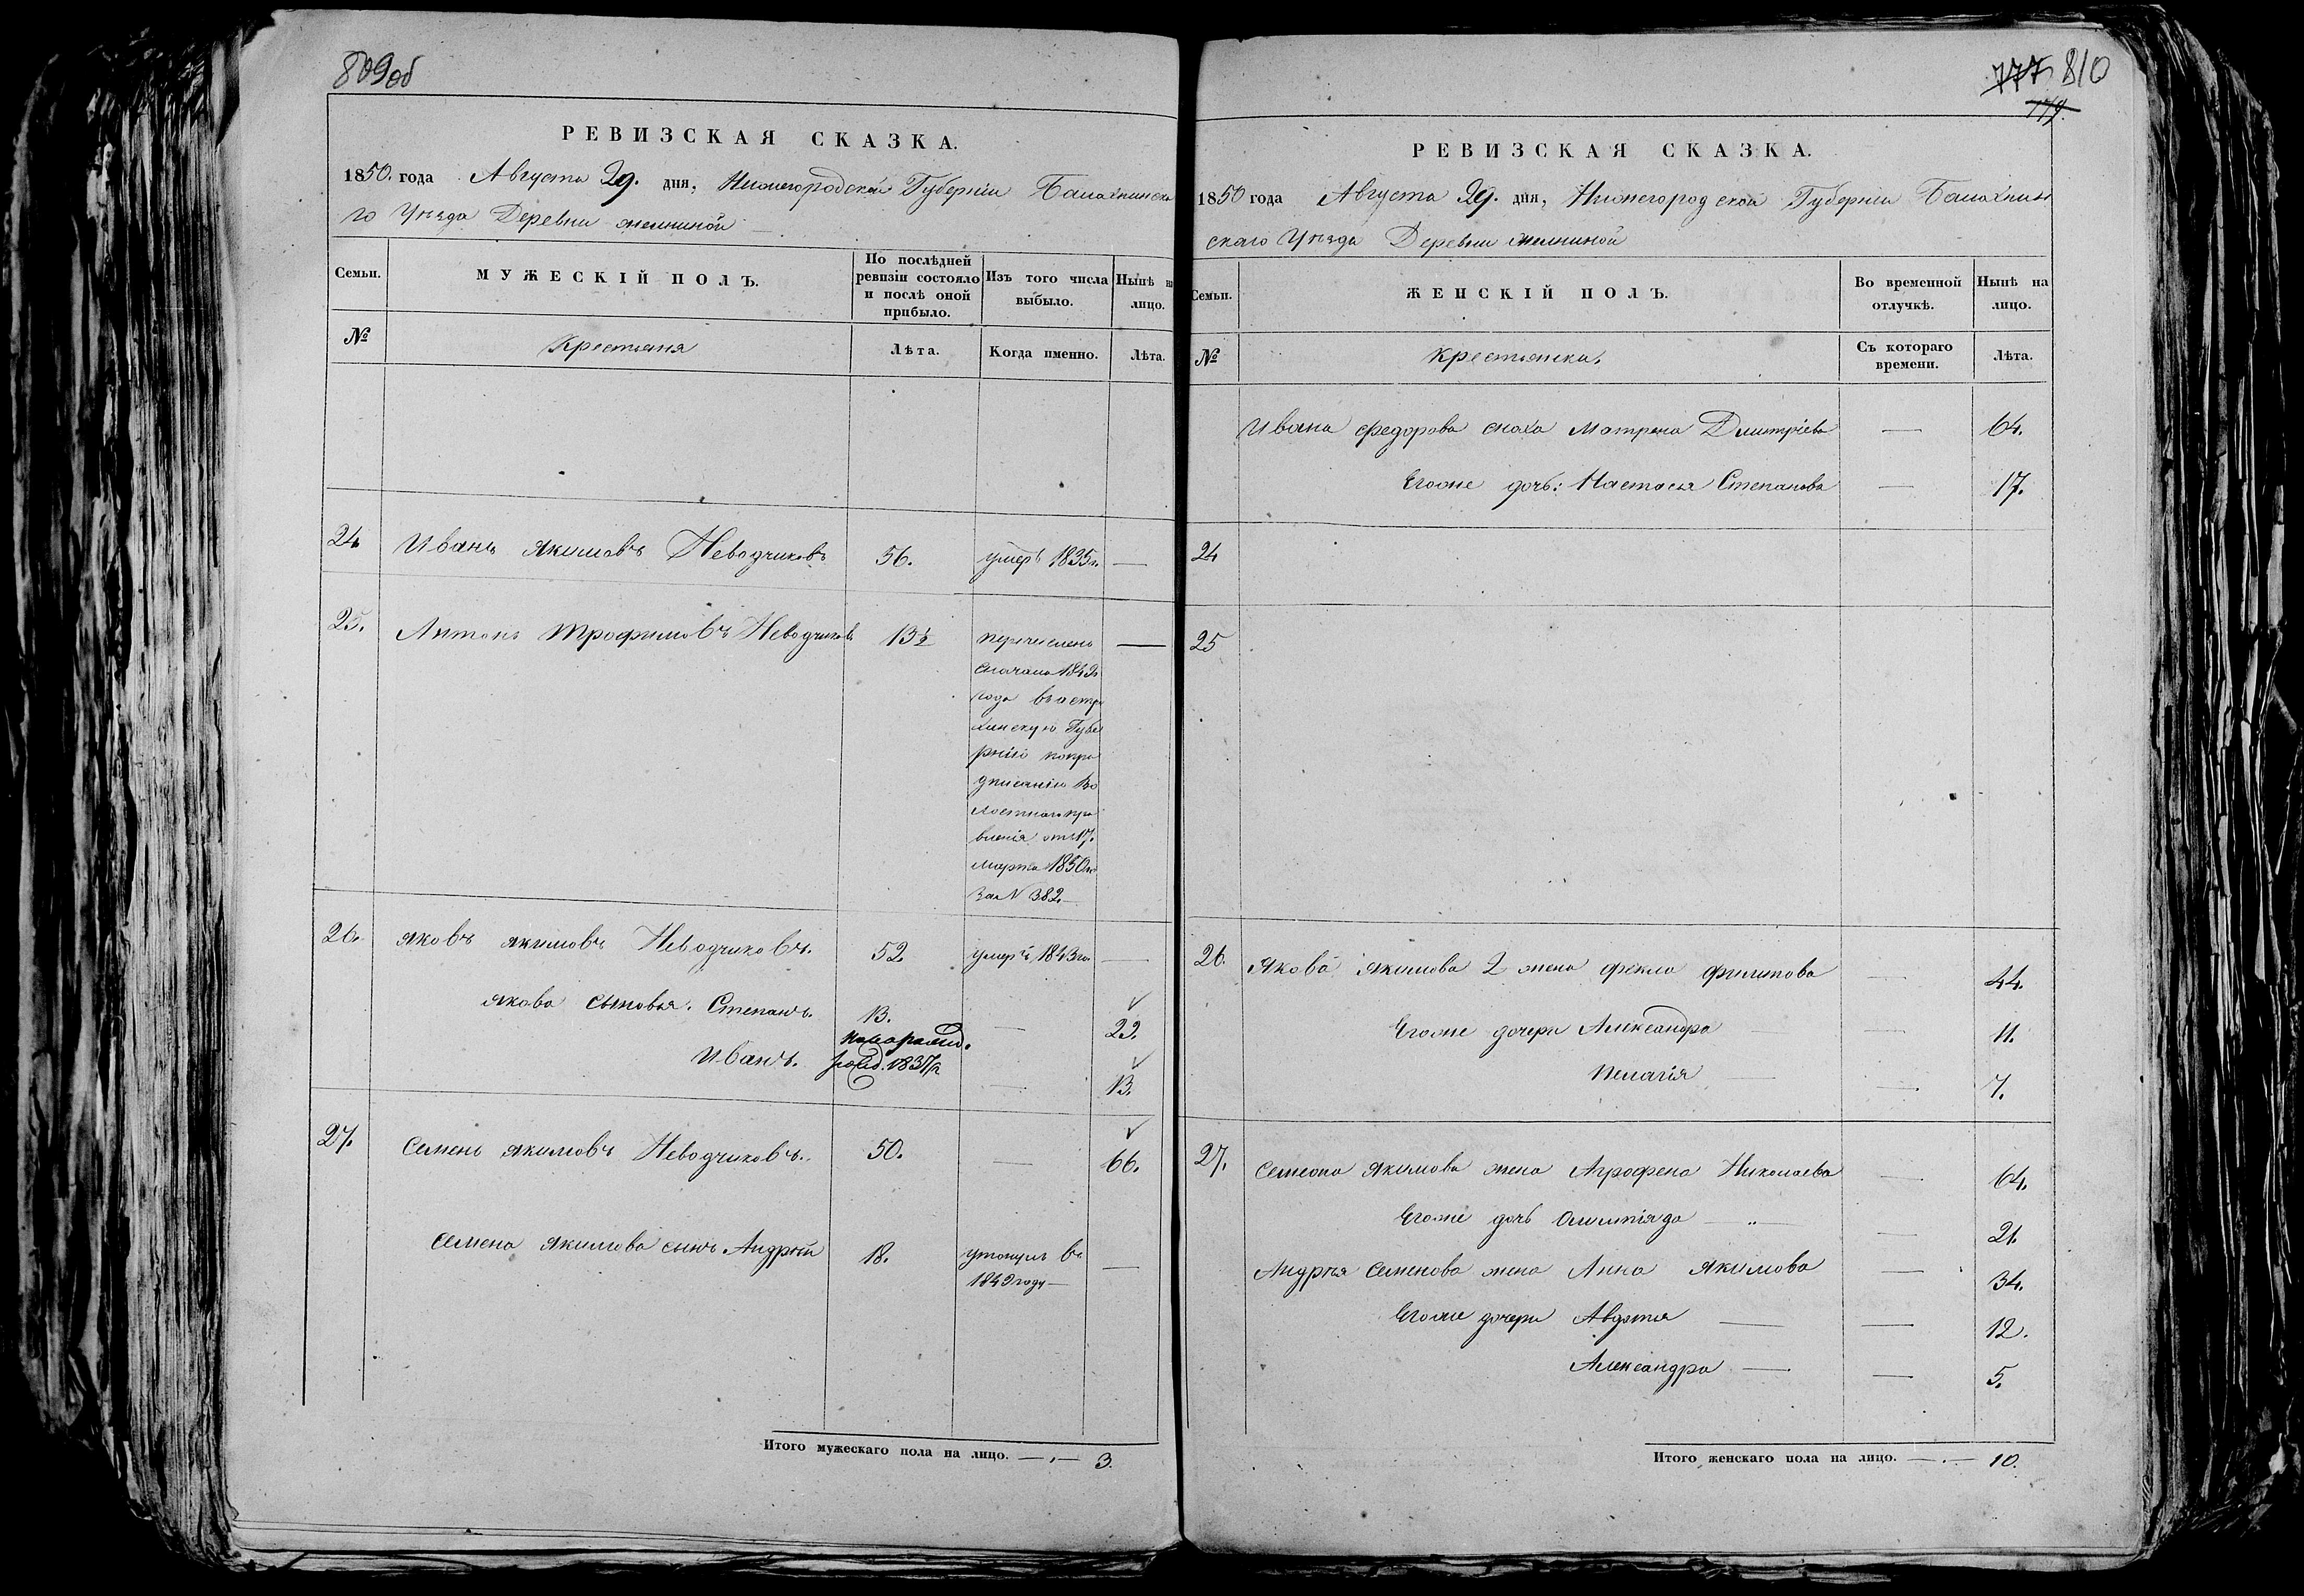 809об
РЕВИЗСКАЯ СКАЗКА.
1850. года Августа 29. дня, Нижегородской Губерніи Балахнинска
го Уѣзда Деревни Желниной
Семьи.
МУЖЕСКІЙ ПОЛЪ.
По послѣдней ревизіи состояло и послѣ оной прибыло.
Изъ того числа выбыло.
Нынѣ на лицо.
№
Крестьяня
Лѣта.
Когда именно.
Лѣта.
24 Иванъ Якимовъ Неводчиковъ 56. умеръ 1835г. —
25. Антонъ Трофимовъ Неводчиковъ 13½ перечисленъ —
сначала 1849
года въ астра
ханскую Губе
рнію по пре
дписанію Во
лостнаго пра
вленія отъ 17.
марта 1850го
за N 382.
26. Яковъ Якимовъ Неводчиковъ. 52. умеръ 1843го. —
Якова сыновья. Степанъ. 13. — 29.
Иванъ. новорожд. рожд. 1837/2 — 13.
27. Семенъ Якимовъ Неводчиковъ. 50. — 66.
Семена Якимова сынъ Андрей 18. утонулъ въ —
1849 году —
Итого мужескаго пола на лицо. — 3.
777 810
779.
РЕВИЗСКАЯ СКАЗКА.
1850 года Августа 29. дня, Нижегородской Губерніи Балахнин
скаго Уѣзда Деревни Желниной
Семьи.
ЖЕНСКІЙ ПОЛЪ.
Во временной отлучкѣ.
Нынѣ на лицо.
№
Крестьянка.
Съ котораго времени.
Лѣта.
Ивана Федорова сноха Матрена Дмитріева — 64.
Егоже дочь: Настасья Степанова — 17.
24
25
26. Якова Якимова 2 жена Фекла Филипова — 44.
Егоже дочери Александра — 11.
Пелагія — — 7.
27. Семена Якимова жена Аграфена Николаева — 64.
Егоже дочь Олимпіяда — „ — — 21.
Андрея Семенова жена Анна Якимова — 34.
Егоже дочери Авдотья — — 12.
Александра — — 5.
Итого женскаго пола на лицо. — 10.